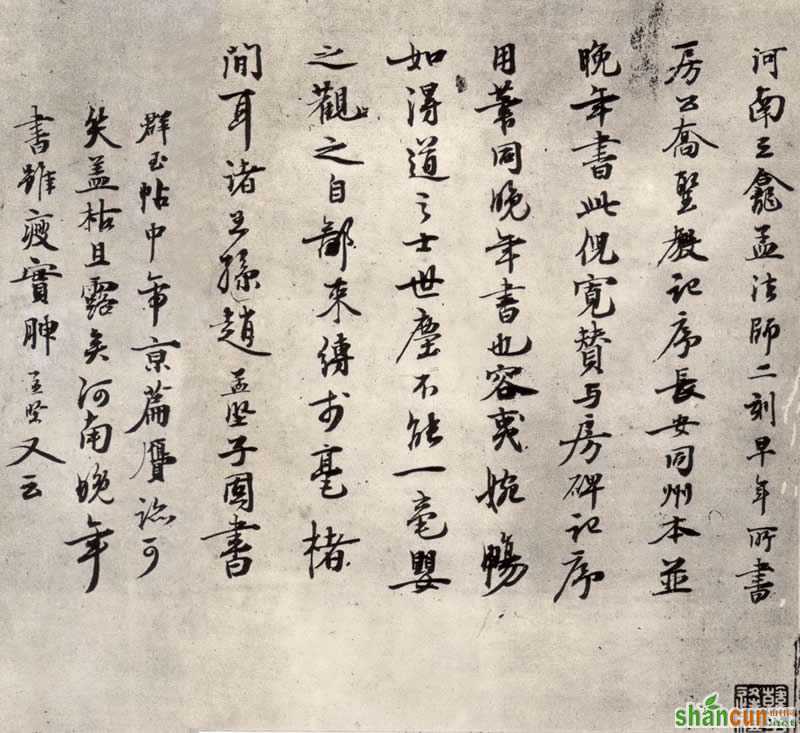 河南三龕孟法師二刻早年所書
房公喬聖教記序長安同州本並
晚年書此倪寬贊与房碑記序
用筆同晚年書也容夷婉暢
如得道之士世塵不能一毫嬰
之觀之自鄙束縛於毫楮
間耳諸王孫趙孟堅子固書
群玉帖中帝京篇贗跡可
笑蓋枯且露矣河南晚年
書雖瘦實腴孟堅又云
shancun